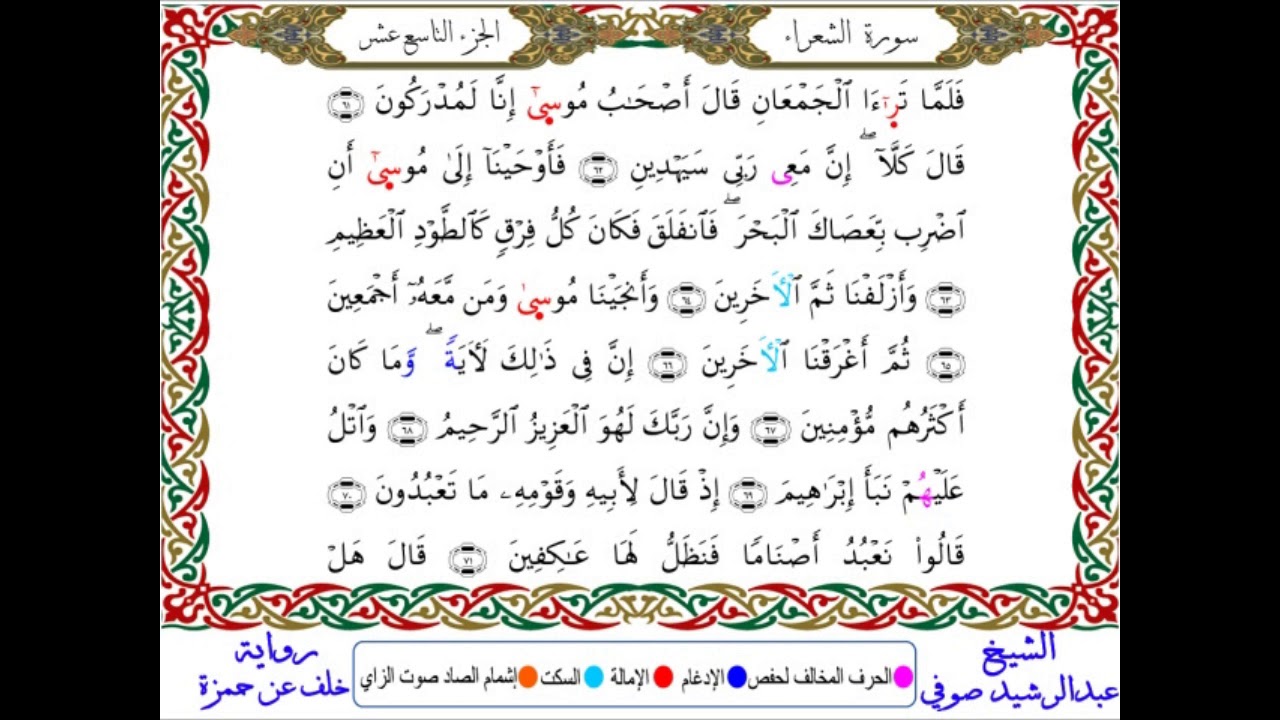 سورة الشعراء
الجزء التاسع عشر
فَلَمَّا تَرَٰٓءَا ٱلۡجَمۡعَانِ قَالَ أَصۡحَٰبُ مُوسۭيٰٓ إِنَّا لَمُدۡرَكُونَ ٦١
قَالَ كَلَّآۖ إِنَّ مَعِى رَبِّى سَيَهۡدِينِ ٦٢ فَأَوۡحَيۡنَآ إِلَىٰ مُوسىٰٓ أَنِ
ٱضۡرِب بِّعَصَاكَ ٱلۡبَحۡرَۖ فَٱنفَلَقَ فَكَانَ كُلُّ فِرۡقٖ كَٱلطَّوۡدِ ٱلۡعَظِيمِ
٦٣ وَأَزۡلَفۡنَا ثَمَّ ٱلۡأٓخَرِينَ ٦٤ وَأَنجَيۡنَا مُوسىٰ وَمَن مَّعَهُۥٓ أَجۡمَعِينَ
٦٥ ثُمَّ أَغۡرَقۡنَا ٱلۡأٓخَرِينَ ٦٦ إِنَّ فِى ذَٰلِكَ لَأٓيَةٗۖ وَّمَا كَانَ
أَكۡثَرُهُم مُّؤۡمِنِينَ ٦٧ وَإِنَّ رَبَّكَ لَهُوَ ٱلۡعَزِيزُ ٱلرَّحِيمُ ٦٨ وَٱتۡلُ
عَلَيۡهُمۡ نَبَأَ إِبۡرَٰهِيمَ ٦٩ إِذۡ قَالَ لِأَبِيهِ وَقَوۡمِهِۦ مَا تَعۡبُدُونَ ٧٠
قَالُواْ نَعۡبُدُ أَصۡنَامٗا فَنَظَلُّ لَهَا عَٰكِفِينَ ٧١ قَالَ هَلۡ
الشيخ
عبدالرشيد صوفي
الحرف المخالف لحفص الإدغام الإمالة السكت إشمام الصاد صوت الزاي
رواية
خلف عن حمزة